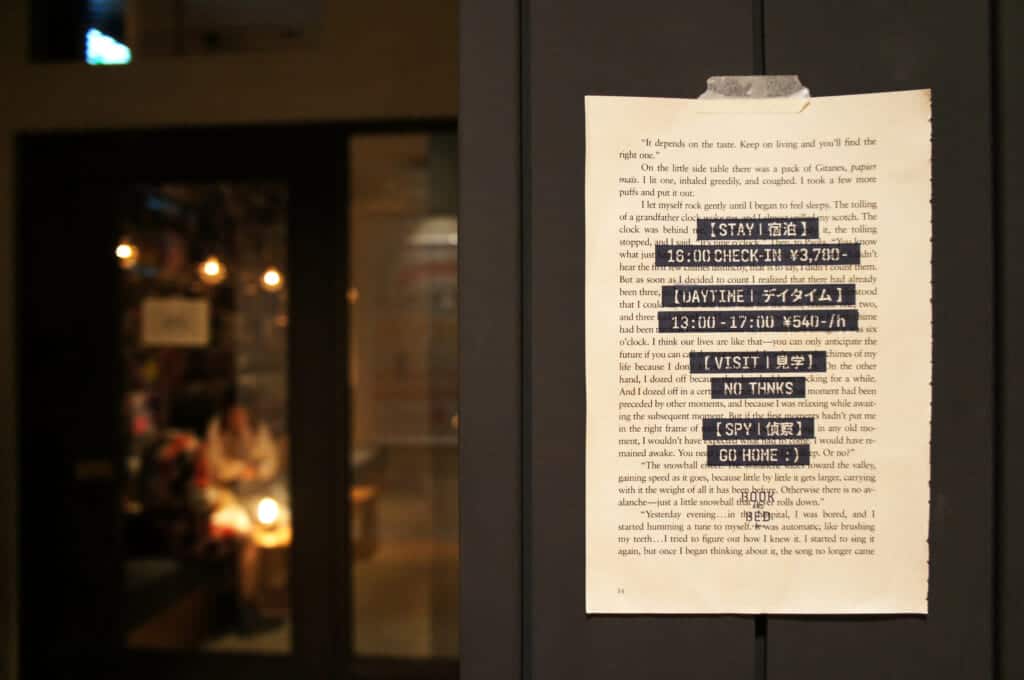 "It depends on the taste. Keep on living and you'll find the
right one."
On the little side table there was a pack of Gitanes, papier
maïs. I lit one, inhaled greedily, and coughed. I took a few more
puffs and put it out.
I let myself rock gently until I began to feel sleepy. The tolling
of a grandfather clock woke me, and I almost spilled my scotch. The
clock was behind it, the rolling
【STAY | 宿泊】
stopped, and I said "It's time o'clock." Then, to Paola, "You know
what just
16:00 CHECK-IN ¥3,780-
hear the first few chimes distinctly, that is to say, I didn't count them.
But as soon as I decided to count I realized that there had already
been three, stood
【DAYTIME | デイタイム】
that I could two,
and three
13:00-17:00 ¥540-/h
had been six
o'clock. I think our lives are like that—you can only anticipate the
future if you can chimes of my
【VISIT | 見学】
life because I don On the other
hand, I dozed off because rocking for a while.
And I dozed off in a moment had been
NO THNKS
preceded by other moments, and because I was relaxing while await-
ing the subsequent moment. But if the first moments hadn't put me
in the right frame of in any old mo-
【SPY | 偵察】
ment, I wouldn't have expected what had to come. I would have re-
mained awake. Or no?"
GO HOME :)
"The snowball effect. The avalanche slides toward the valley,
gaining speed as it goes, because little by little it gets larger, carrying
with it the weight of all it has been before. Otherwise there is no av-
alanche—just a little snowball that never rolls down."
BOOK
AND
BED
"Yesterday evening…in the hospital, I was bored, and I
started humming a tune to myself. It was automatic, like brushing
my teeth…I tried to figure out how I knew it. I started to sing it
again, but once I began thinking about it, the song no longer came